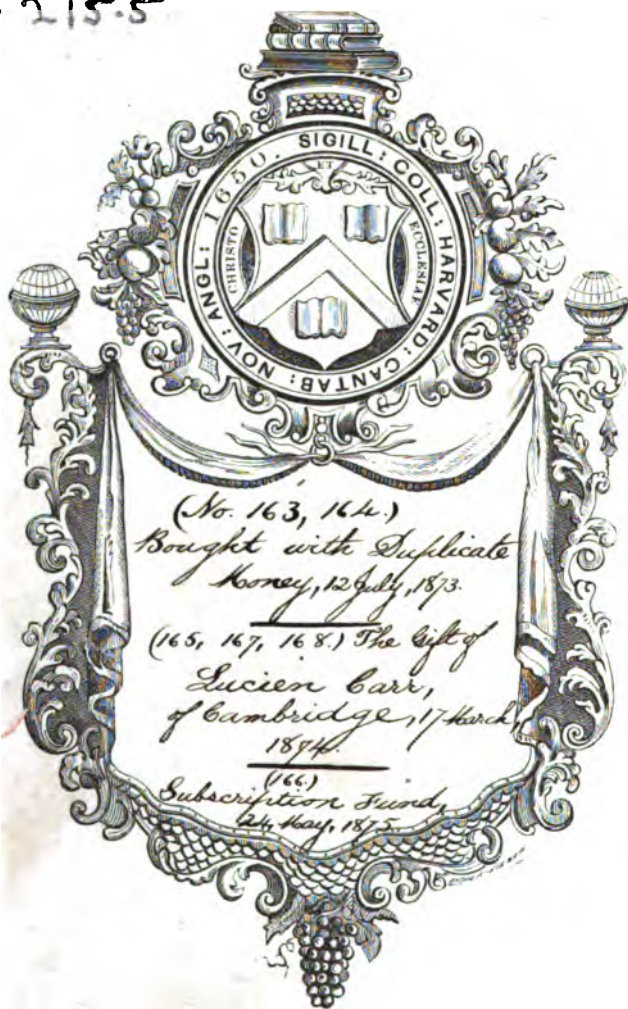 215.5
SIGILL: COLL: HARVARD: CANTAB: NOV: ANGL: 1650.
CHRISTO ET ECCLESIAE
(No. 163, 164.)
Bought with Duplicate
Money, 12 July, 1873.
(165, 167, 168.) The Gift of
Lucien Carr,
of Cambridge, 17 March,
1874.
(166.)
Subscription Fund,
24 May, 1875.